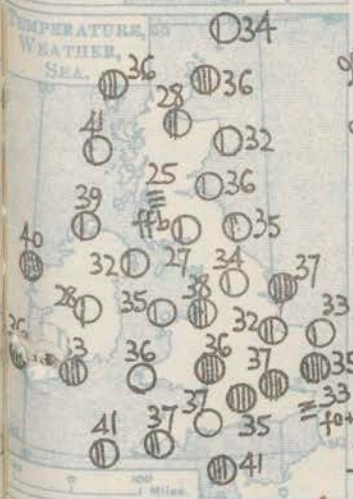 TEMPERATURE,
WEATHER,
SEA.
34
36
36
28
41
32
25
36
39
ffb
35
40
32
27
34
37
28
35
38
32
33
36
36
37
35
37
35
33
fo
41
37
41
100
Miles.